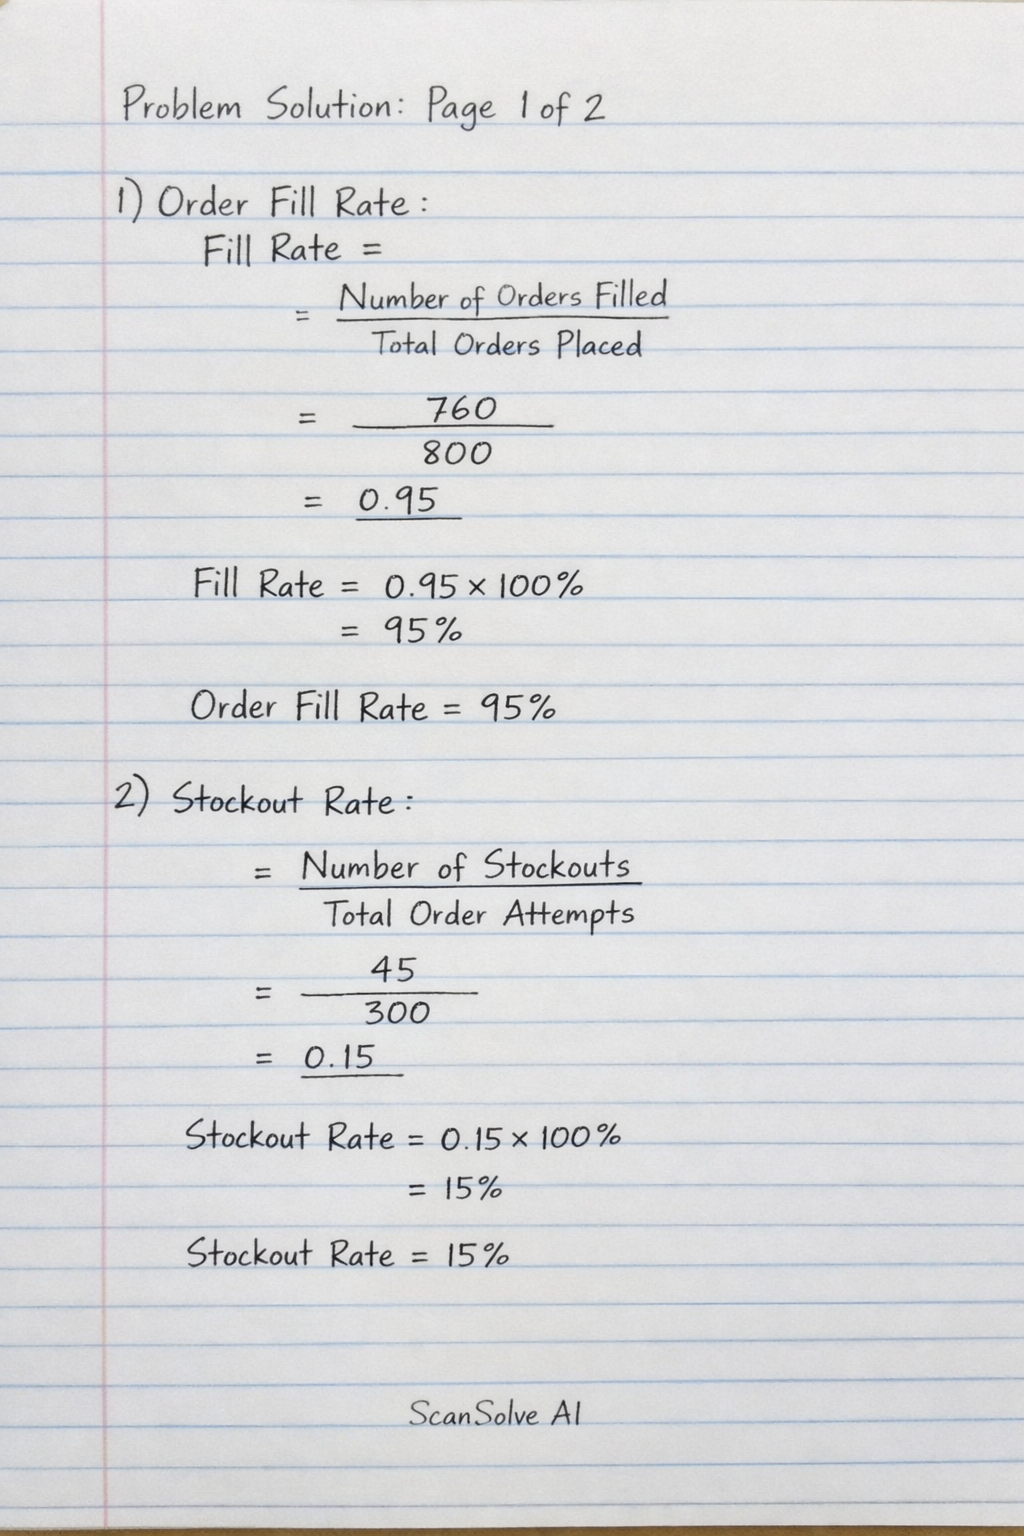 Problem Solution: Page 1 of 2
1) Order Fill Rate:
Fill Rate =
= Number of Orders Filled
Total Orders Placed
= 760
800
= 0.95
Fill Rate = 0.95 × 100%
= 95%
Order Fill Rate = 95%
2) Stockout Rate:
= Number of Stockouts
Total Order Attempts
= 45
300
= 0.15
Stockout Rate = 0.15 × 100%
= 15%
Stockout Rate = 15%
ScanSolve AI